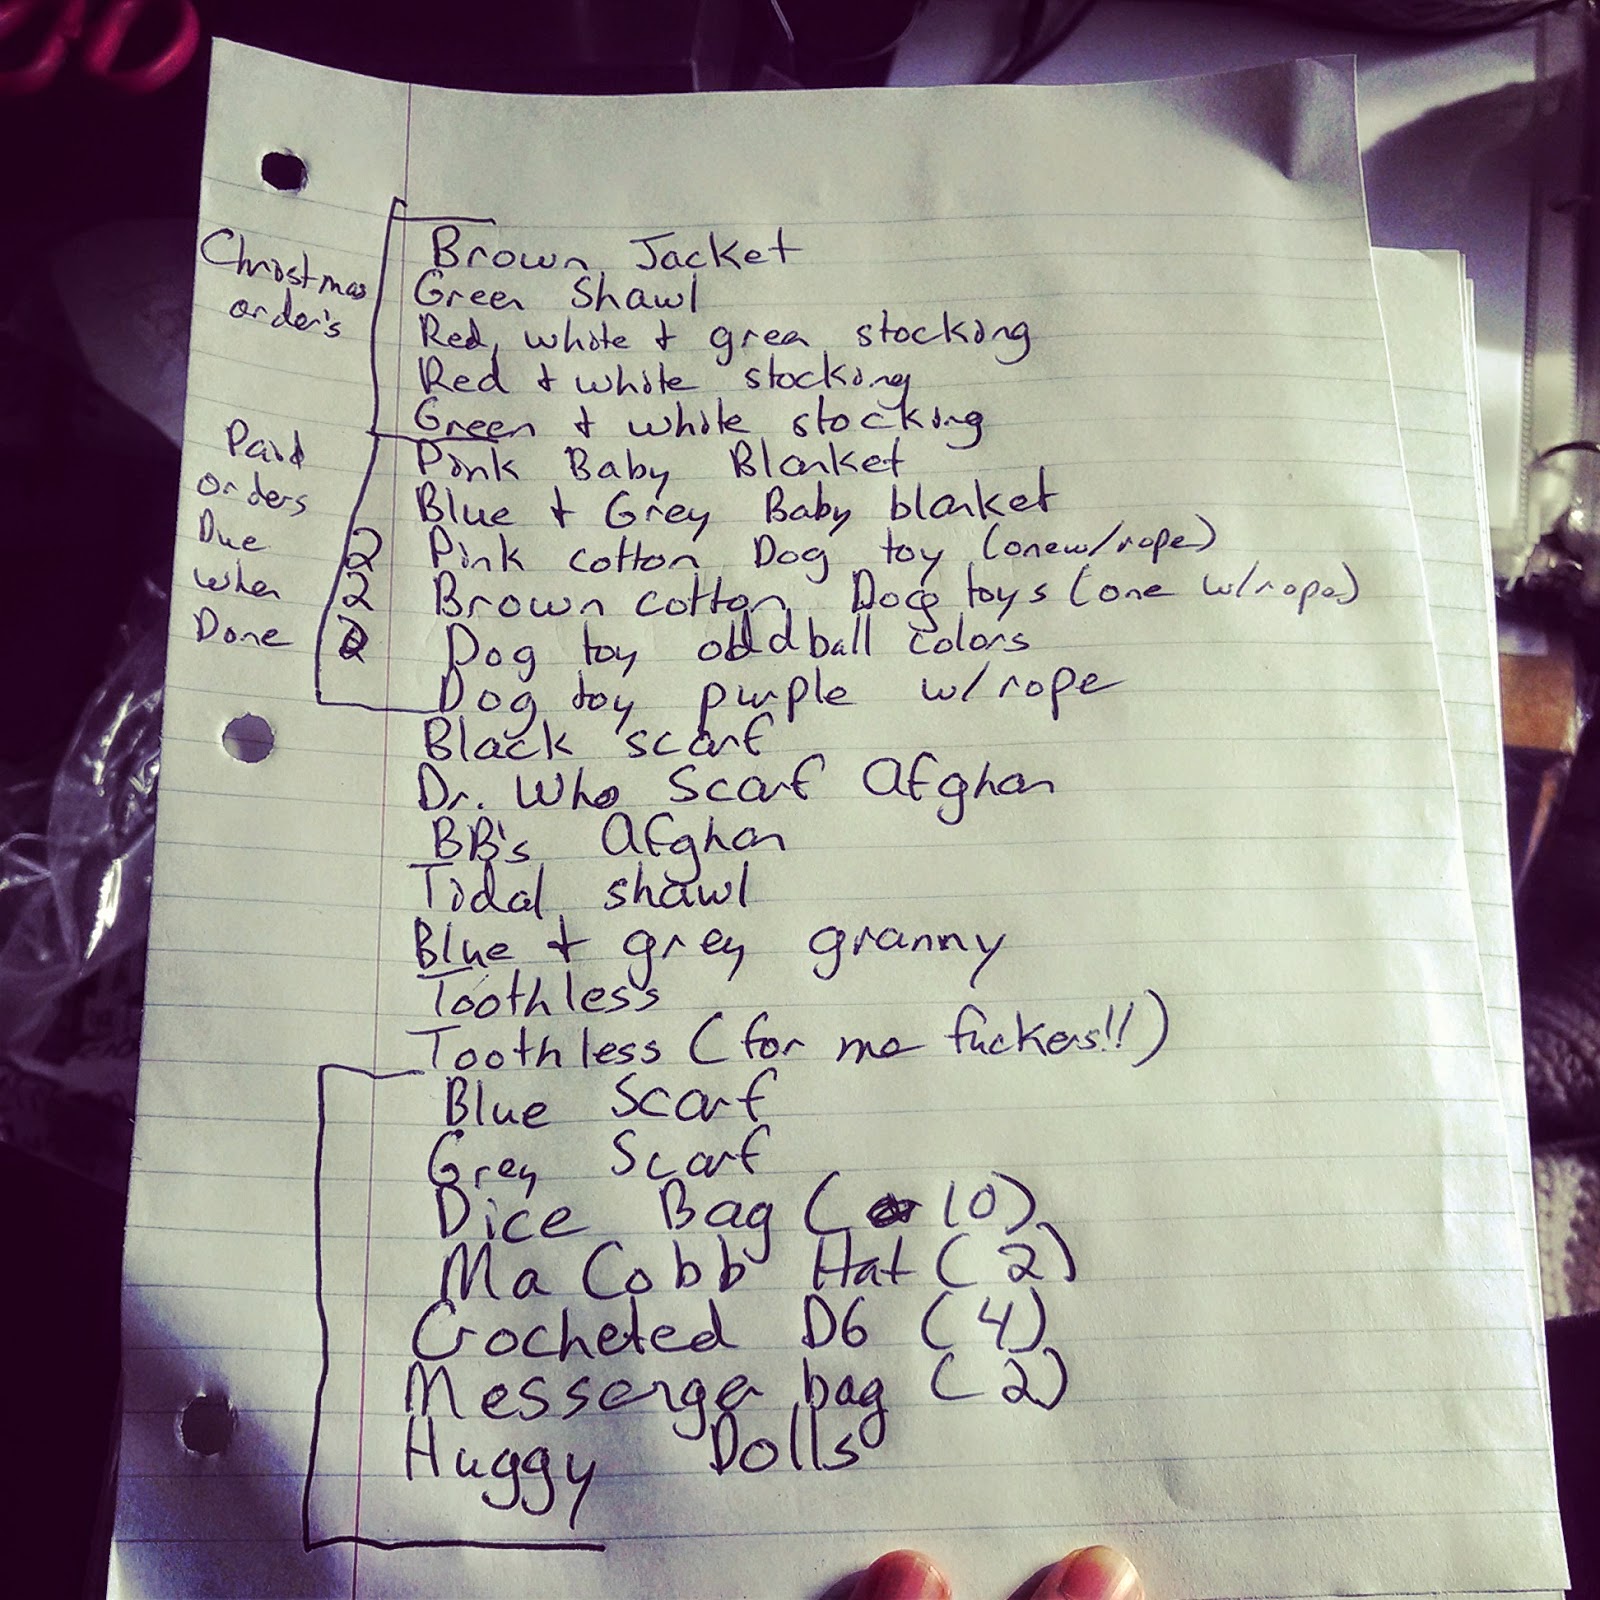 Christmas
order's
Brown Jacket
Green Shawl
Red, white + green stocking
Red + white stocking
Green + white stocking
Paid
orders
Due
when
Done
Pink Baby Blanket
Blue + Grey Baby blanket
2 Pink cotton Dog toy (one w/rope)
2 Brown cotton Dog toys (one w/rope)
2 Dog toy oddball colors
Dog toy purple w/rope
Black scarf
Dr. Who Scarf Afghan
BB's Afghan
Tidal shawl
Blue + grey granny
Toothless
Toothless (for me fuckers!!)
Blue Scarf
Grey Scarf
Dice Bag (10)
Ma Cobb Hat (2)
Crocheted D6 (4)
Messenger bag (2)
Huggy Dolls